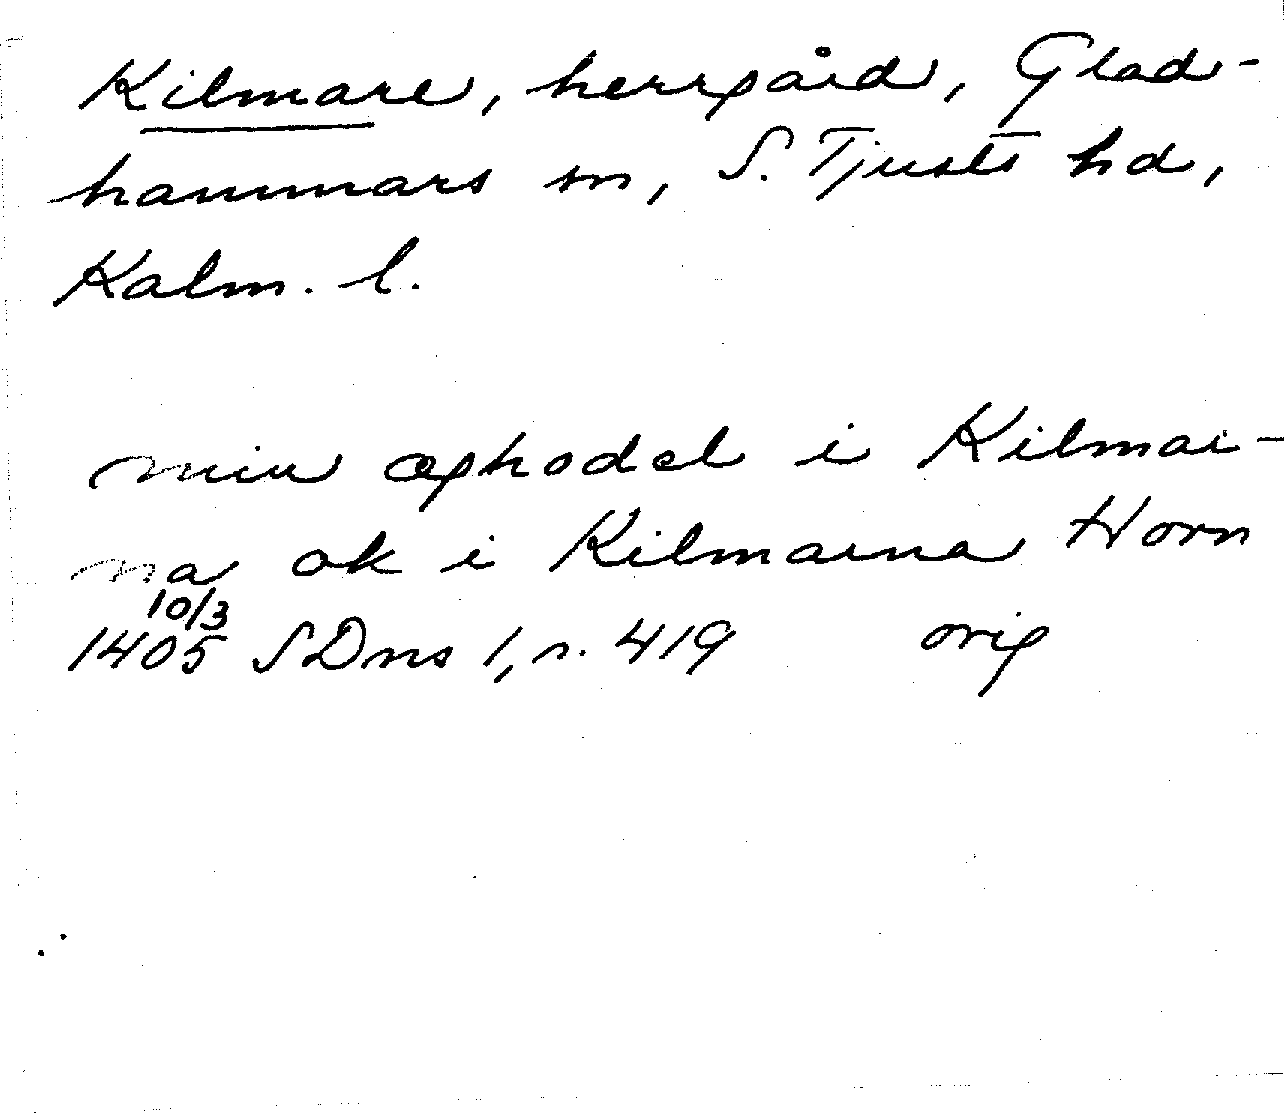 Kilmare, herrgård, Glad-
hammars sn, S. Tjusts hd,
Kalm. l.
miu ophodel i Kilmar-
na ok i Kilmarna Horn
10/3
1405 SDns 1, s. 419 orig